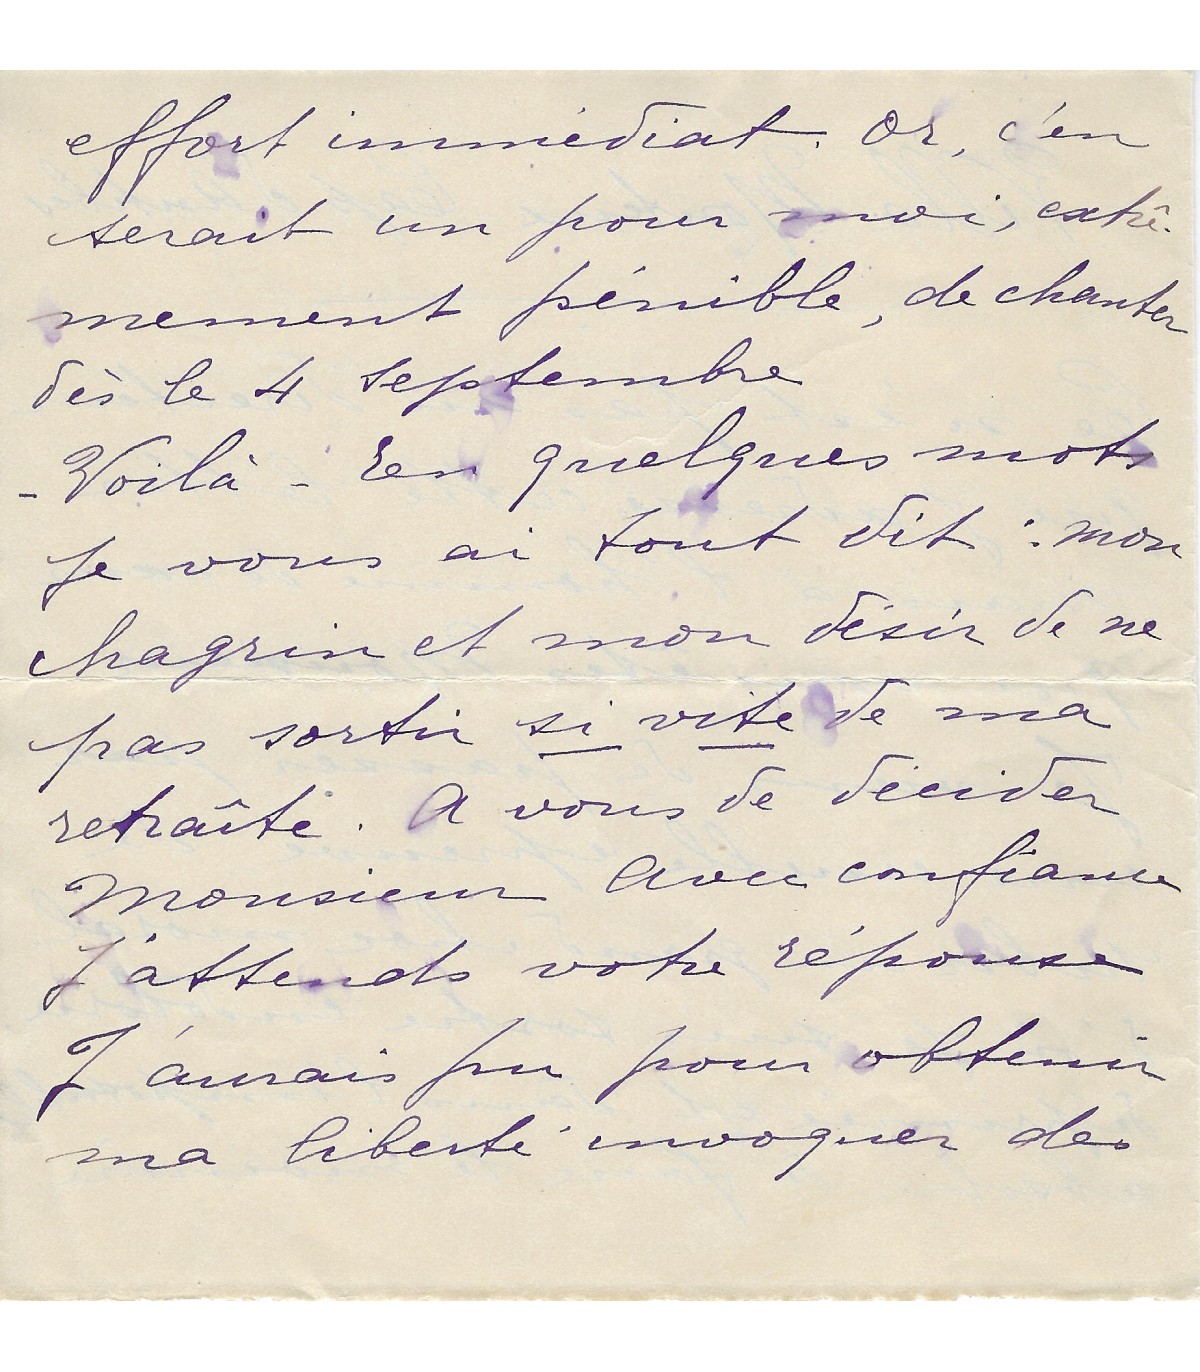 effort immédiat. Or, c'en
serait un pour moi, extrê-
mement pénible, de chanter
dès le 4 septembre
- Voilà - En quelques mots
je vous ai tout dit : mon
chagrin et mon désir de ne
pas sortir si vite de ma
retraîte. A vous de décider
Monsieur Avec confiance
J'attends votre réponse
J'aurais pu pour obtenir
ma liberté invoquer des